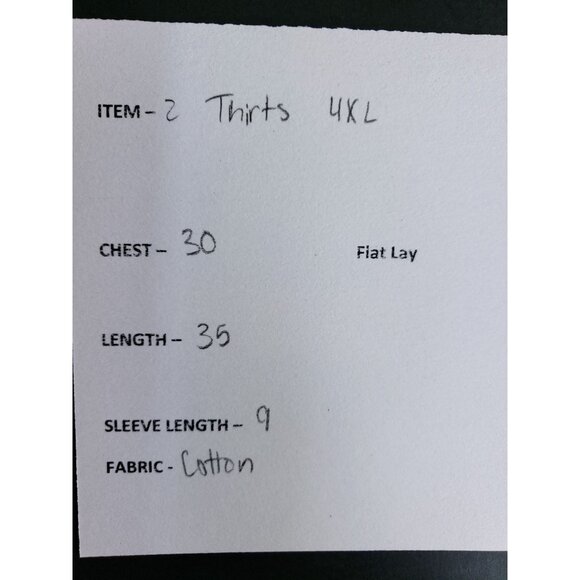 ITEM - 2 Thirts 4XL
CHEST - 30 Flat Lay
LENGTH - 35
SLEEVE LENGTH - 9
FABRIC - Cotton